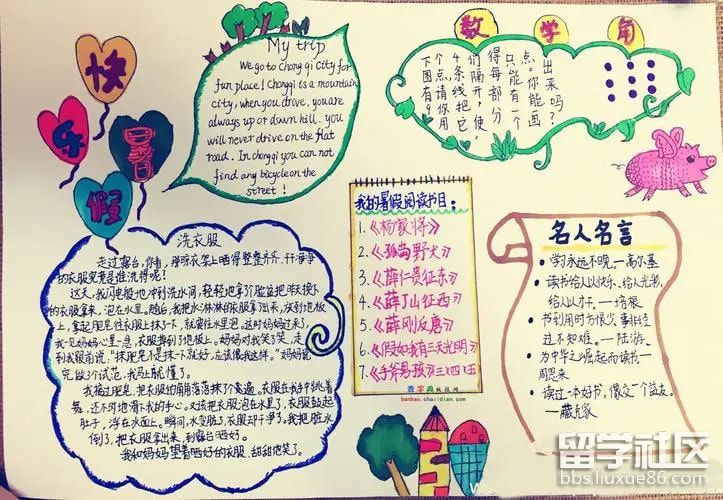 快
乐
暑
假
My trip
We go to Chong qi City for
fun place! Chongqi is a mountain
city, when you drive, you are
always up or down hill. you
will never drive on the flat
road. In chongqi you can not
find any bicycle on the
street!
数学角
下图有9
个点,请你用
4条线把它
们隔开,使
得每部分
只能有一个
点。你能画
出来吗?
洗衣服
走过露台,你看,那晾衣架上晒得整整齐齐、干干净净
的衣服究竟是谁洗得呢?
这天,我闪电般地冲到洗水间,轻轻地拿个脸盆把
的衣服拿来,泡在水里。随后,我把水淋淋的衣服拿出来,放到地板
上,拿起肥皂往衣服上抹了一下,就塞往水里泡。这时妈妈过来了,
我一见妈妈心里一急,衣服掉到了地板上。妈妈对我笑了笑,走
到我跟前说:"抹肥皂不是抹一下就好,应该像我这样。"妈妈说
完,做了个试范,我马上就懂了。
我擦过肥皂,把衣服的角角落落抹了个遍。衣服在我手中跳着
舞,还不时地滑下我的手心。又该把衣服泡在水里了,衣服鼓起
肚子,浮在水面上。瞬间,水变脏了,衣服却干净了。我把脏水
倒了,把衣服拿出来,到露台晒好。
我和妈妈望着晒好的衣服,甜甜地笑了。
我的暑假阅读书目:
1.《杨家将》
2.《孤岛野犬》
3.《薛仁贵征东》
4.《薛丁山征西》
5.《薛刚反唐》
6.《假如我有三天光明》
7.《手斧男孩》三、四、五
查字典 板报网
banbao.chazidian.com
名人名言
•学习永远不晚。—高尔基
•读书给人以快乐、给人以光彩、
给人以才干。—培根
•书到用时方恨少、事非经
过不知难。—陆游。
•为中华之崛起而读书—
周恩来
•读过一本好书,像交一个益友。
—臧克家
留学社区
bbs.liuxue86.com